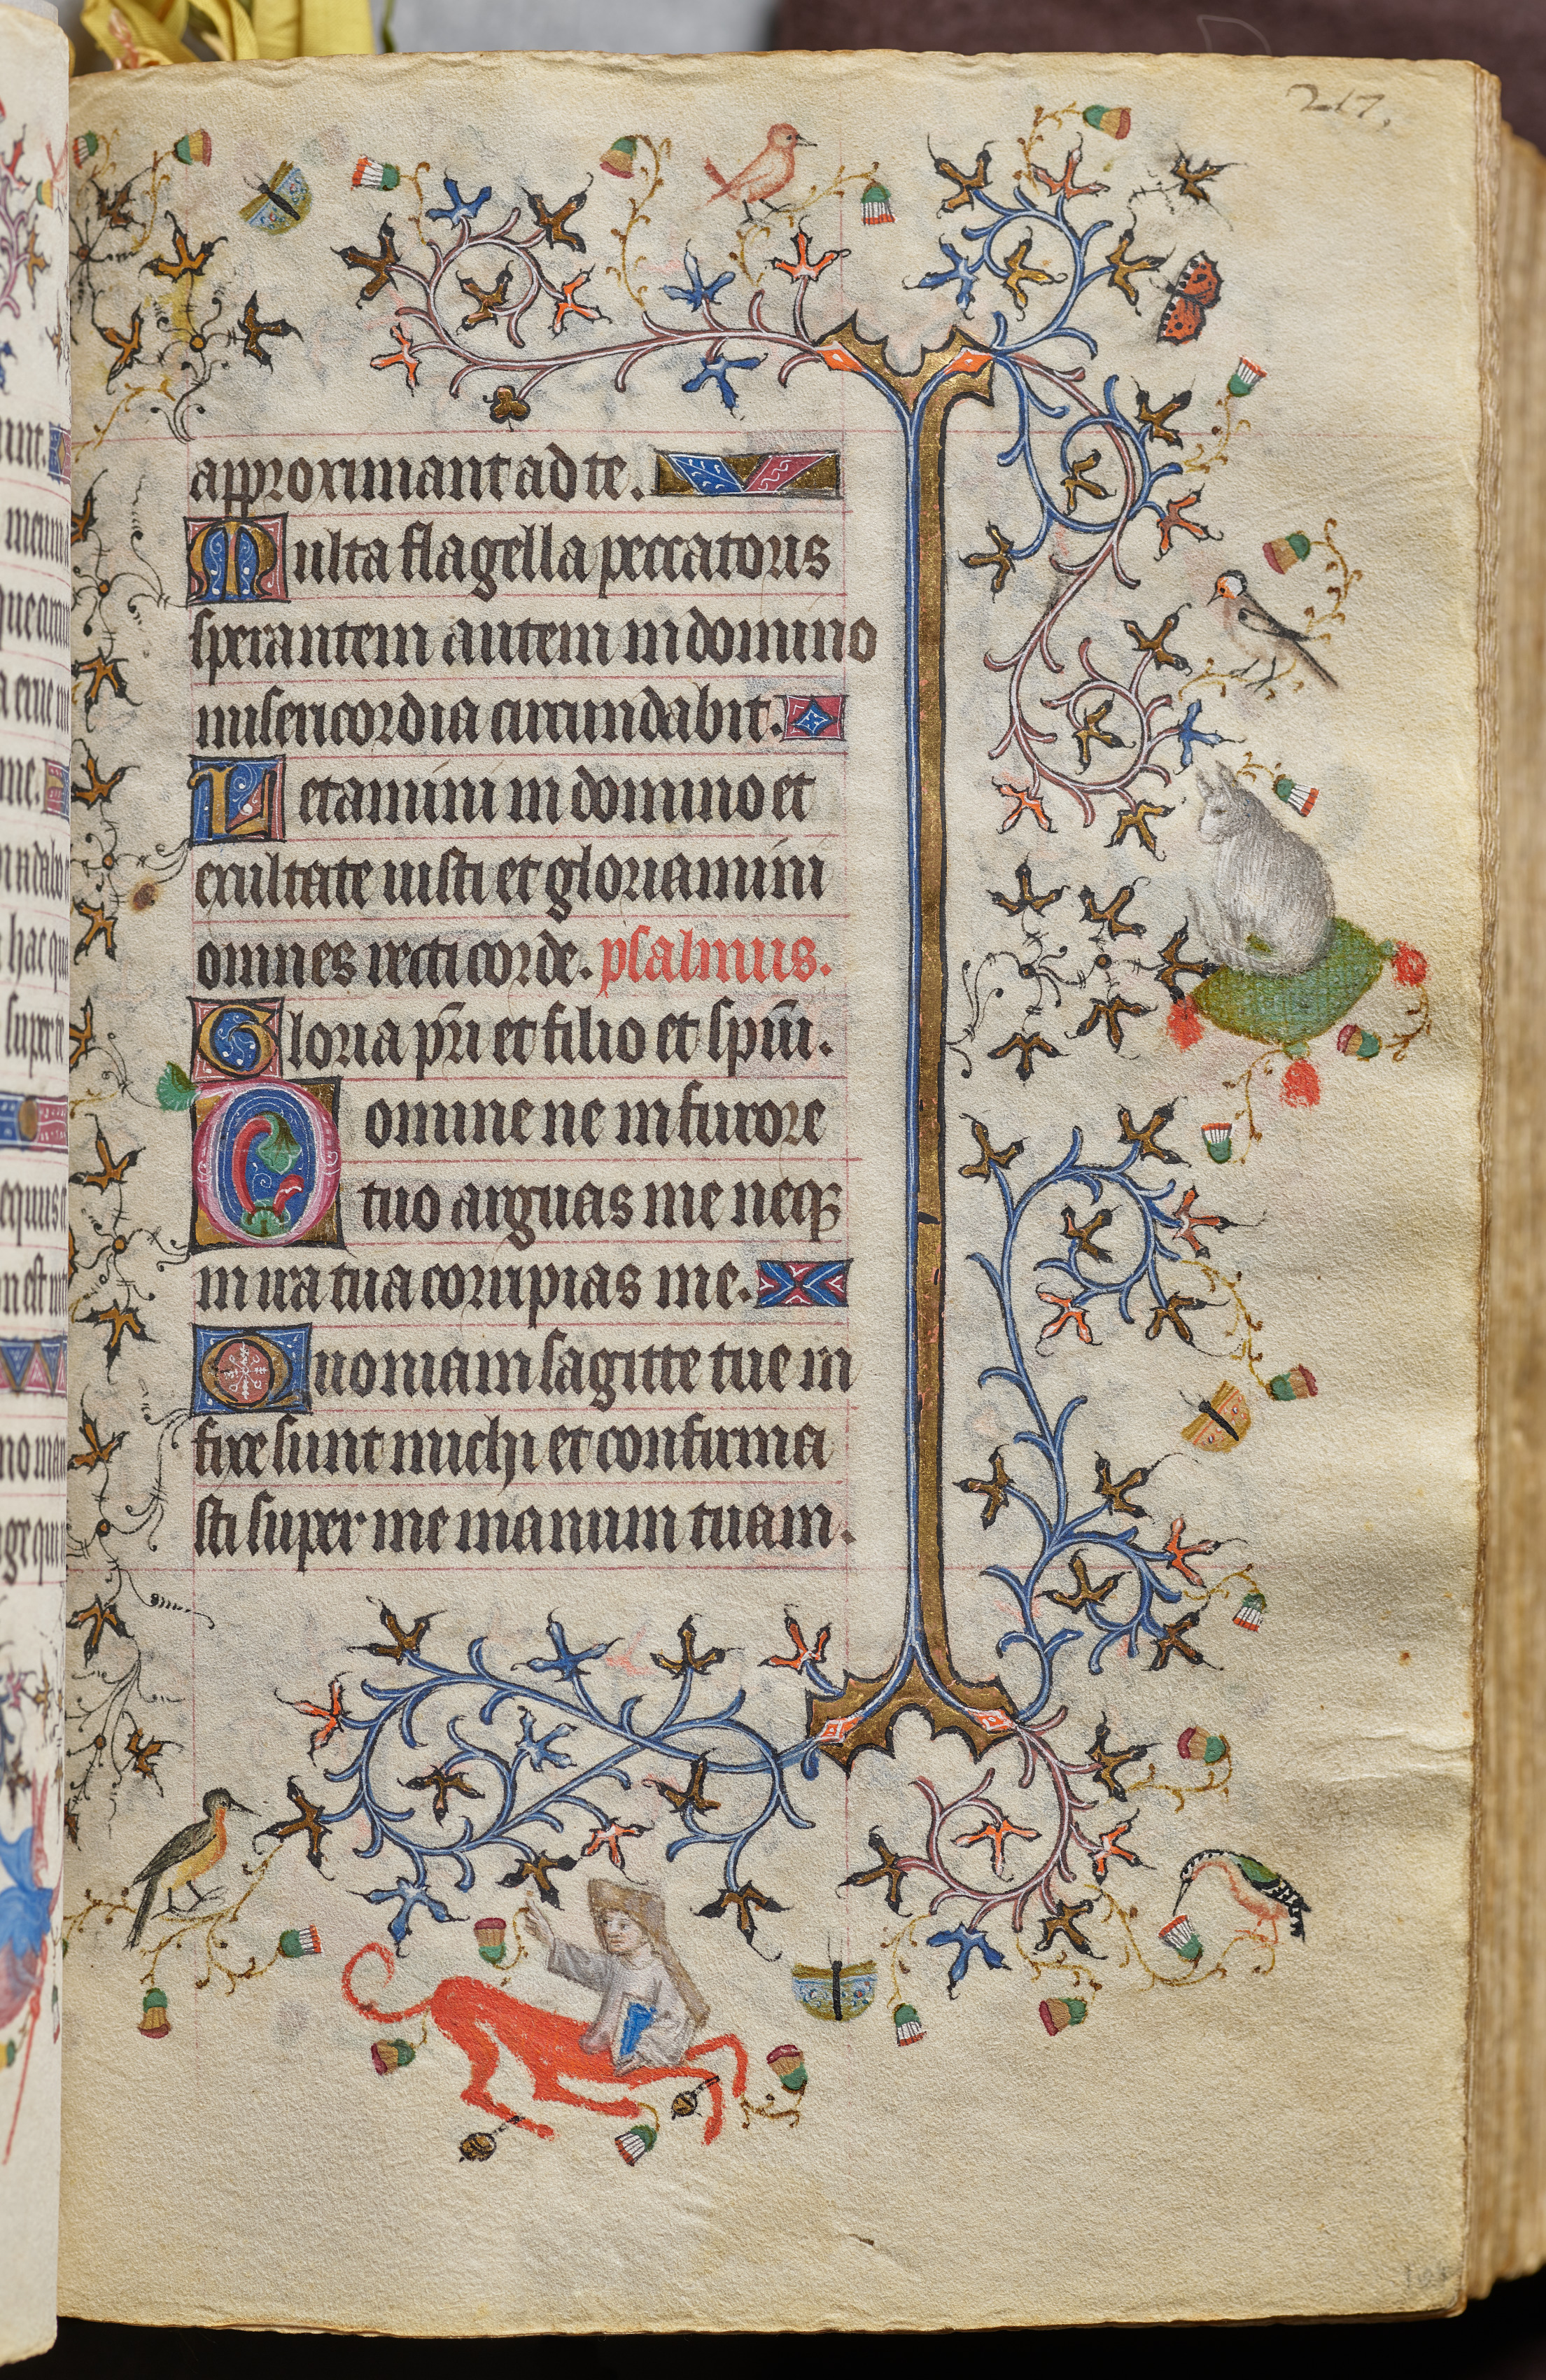 217.
approximant ad te.
Multa flagella peccatoris
sperantem autem in domino
misericordia circundabit.
Letamini in domino et
exultate iusti et gloriamini
omnes recti corde. psalmus.
Gloria pr̄i et filio et spiī.
Domine ne in furore
tuo arguas me neqꝫ
in ira tua corripias me.
Quoniam sagitte tue in
fixe sunt michi et confirma
sti super me manum tuam.